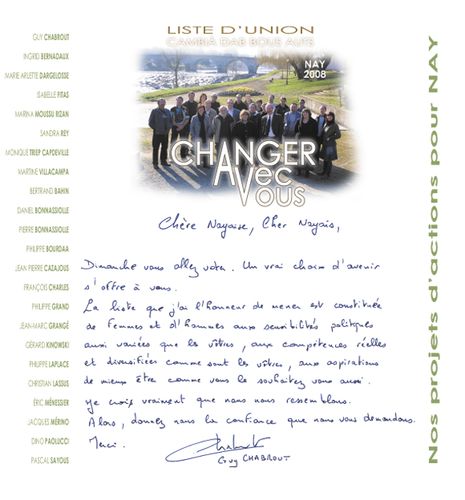 LISTE D'UNION
CAMBIA DAB BOUS AUTS
NAY
2008
CHANGER
AVec
VOUS
GUY CHABROUT
INGRID BERNADAUX
MARIE ARLETTE DARGELOSSE
ISABELLE FITAS
MARINA MOUSSU RIZAN
SANDRA REY
MONIQUE TRIEP CAPDEVILLE
MARTINE VILLACAMPA
BERTRAND BAHIN
DANIEL BONNASSIOLLE
PIERRE BONNASSIOLLE
PHILIPPE BOURDAA
JEAN PIERRE CAZAJOUS
FRANÇOIS CHARLES
PHILIPPE GRAND
JEAN-MARC GRANGÉ
GÉRARD KINOWSKI
PHILIPPE LAPLACE
CHRISTIAN LASSUS
ÉRIC MÉNESSIER
JACQUES MÉRINO
DINO PAOLUCCI
PASCAL SAYOUS
Chère Nayaise, Cher Nayais,
Dimanche vous allez voter. Un vrai choix d'avenir
s'offre à vous.
La liste que j'ai l'honneur de mener est constituée
de Femmes et d'Hommes aux sensibilités politiques
aussi variées que les vôtres, aux compétences réelles
et diversifiées comme sont les vôtres, aux aspirations
de mieux être comme vous le souhaitez vous aussi.
Je crois vraiment que nous nous ressemblons.
Alors, donnez nous la confiance que nous vous demandons.
Merci.
Chabrout
Guy CHABROUT
Nos projets d'actions pour NAY